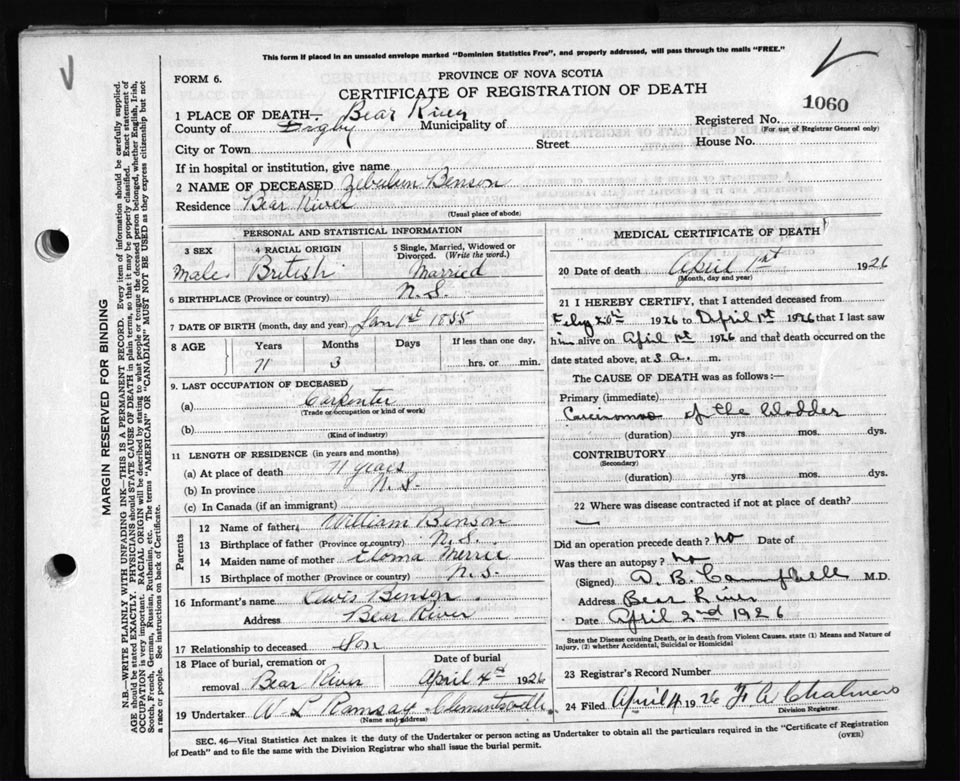 This form if placed in an unsealed envelope marked "Dominion Statistics Free", and properly addressed, will pass through the mails "FREE."
FORM 6.
PROVINCE OF NOVA SCOTIA
CERTIFICATE OF REGISTRATION OF DEATH
1060
1 PLACE OF DEATH—. Bear River
County of Digby Municipality of
Registered No.
(For use of Registrar General only)
City or Town Street House No.
If in hospital or institution, give name
2 NAME OF DECEASED Zebulun Benson
Residence Bear River
(Usual place of abode)
PERSONAL AND STATISTICAL INFORMATION
3 SEX 4 RACIAL ORIGIN 5 Single, Married, Widowed or Divorced. (Write the word.)
Male British Married
6 BIRTHPLACE (Province or country) N.S.
7 DATE OF BIRTH (month, day and year) Jan 1st 1855
8 AGE Years Months Days If less than one day,
71 3 hrs. or min.
9. LAST OCCUPATION OF DECEASED
(a) Carpenter
(Trade or occupation or kind of work)
(b)
(Kind of industry)
11 LENGTH OF RESIDENCE (in years and months)
(a) At place of death 71 years
(b) In province N.S.
(c) In Canada (if an immigrant)
Parents
12 Name of father William Benson
13 Birthplace of father (Province or country) N.S.
14 Maiden name of mother
15 Birthplace of mother (Province or country) N.S.
16 Informant's name Lewis Benson
Address Bear River
17 Relationship to deceased Son
18 Place of burial, cremation or removal Bear River
Date of burial April 4th 1926
19 Undertaker W L Ramsay
(Name and address)
MEDICAL CERTIFICATE OF DEATH
20 Date of death April 1st 1926
(Month, day and year)
21 I HEREBY CERTIFY, that I attended deceased from
Feby 20th 1926 to April 1st 1926 that I last saw
him alive on April 1st 1926 and that death occurred on the
date stated above, at 3 a. m.
The CAUSE OF DEATH was as follows:—
Primary (immediate)
Carcinoma of the bladder
(duration) yrs mos. dys.
CONTRIBUTORY
(Secondary)
(duration) yrs. mos. dys.
22 Where was disease contracted if not at place of death?
Did an operation precede death? no Date of
Was there an autopsy? no
(Signed) D. B. Campbell M.D.
Address Bear River
Date April 2nd 1926
State the Disease causing Death, or in death from Violent Causes, state (1) Means and Nature of
Injury, (2) whether Accidental, Suicidal or Homicidal
23 Registrar's Record Number
24 Filed April 4 1926 Chalmers
Division Registrar.
SEC. 46—Vital Statistics Act makes it the duty of the Undertaker or person acting as Undertaker to obtain all the particulars required in the "Certificate of Registration
of Death" and to file the same with the Division Registrar who shall issue the burial permit.
(OVER)
MARGIN RESERVED FOR BINDING
N.B.—WRITE PLAINLY WITH UNFADING INK—THIS IS A PERMANENT RECORD. Every item of information should be carefully supplied.
AGE should be stated EXACTLY. PHYSICIANS should STATE CAUSE OF DEATH in plain terms, so that it may be properly classified. Exact statement of
OCCUPATION is very important. RACIAL ORIGIN will be described by stating to what people or tongue the deceased person belonged, whether English, Irish,
Scotch, French, German, Russian, Ruthenian, etc. The terms "AMERICAN" OR "CANADIAN" MUST NOT BE USED as they express citizenship but not
a race or people. See instructions on back of Certificate.